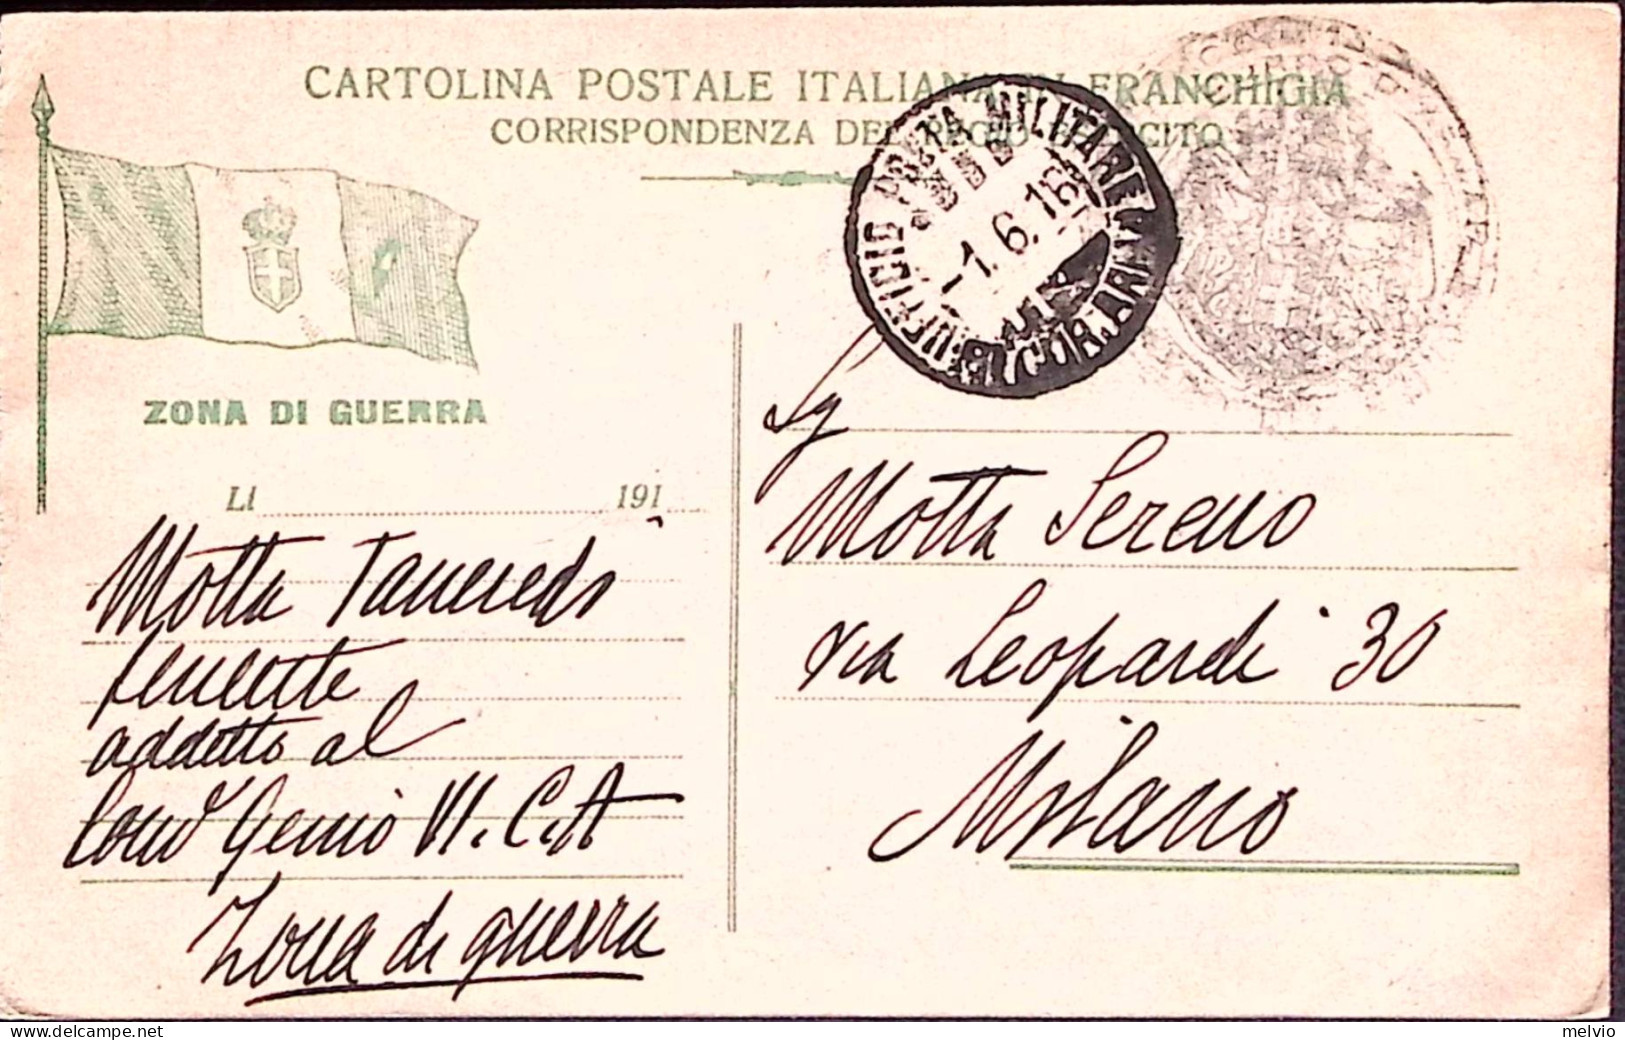 CARTOLINA POSTALE ITALIANA IN FRANCHIGIA
CORRISPONDENZA DEL REGIO ESERCITO
UFFICIO POSTA MILITARE
-1.6.16
ZONA DI GUERRA
LI 191
Motta Tancredo
tenente
addetto al
Com.do Genio VI. C. A
Zona di guerra
Sg
Motta Sereno
via Leopardi 30
Milano
melvio